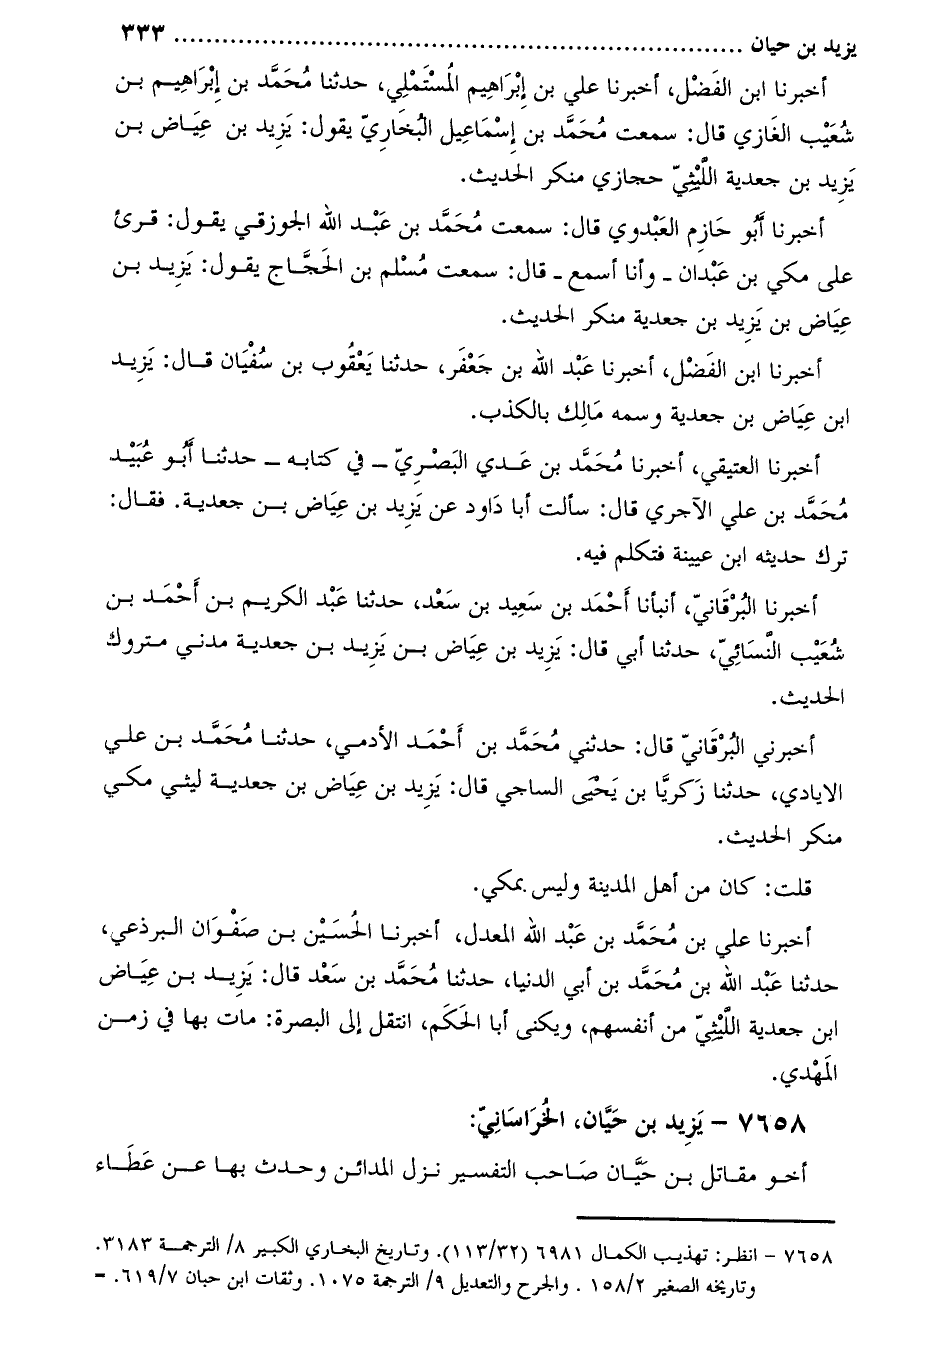 يزيد بن حيان ................................................................ ٣٣٣
أخبرنا ابن الفَضْل، أخبرنا علي بن إِبْرَاهيم المُسْتَمْلِي، حدثنا مُحَمَّد بن إِبْرَاهِيم بن
شُعَيْب الغَازي قال: سمعت مُحَمَّد بن إِسْمَاعيل البُخَارِيّ يقول: يَزِيد بن عِيَاض بن
يَزِيد بن جعدبة اللَّيْثِيّ حجازي منكر الحديث.
أخبرنا أَبُو حَازِم العَبْدوي قال: سمعت مُحَمَّد بن عَبْد الله الجوزقي يقول: قرئ
على مكي بن عَبْدان ـ وأنا أسمع ـ قال: سمعت مُسْلم بن الحَجَّاج يقول: يَزِيد بن
عِيَاض بن يَزِيد بن جعدبة منكر الحديث.
أخبرنا ابن الفَضْل، أخبرنا عَبْد الله بن جَعْفَر، حدثنا يَعْقُوب بن سُفْيَان قال: يَزِيد
ابن عِيَاض بن جعدبة وسمه مَالِك بالكذب.
أخبرنا العتيقي، أخبرنا مُحَمَّد بن عَدي البَصْرِيّ ـ في كتابه ـ حدثنا أَبُو عُبَيْد
مُحَمَّد بن علي الآجري قال: سألت أبا دَاود عن يَزِيد بن عِيَاض بن جعدبة. فقال:
ترك حديثه ابن عيينة فتكلم فيه.
أخبرنا البُرْقَانيّ، أنبأنا أَحْمَد بن سَعِيد بن سَعْد، حدثنا عَبْد الكريم بن أَحْمَد بن
شُعَيْب النَّسَائِيّ، حدثنا أبي قال: يَزِيد بن عِيَاض بن يَزِيد بن جعدبة مدني متروك
الحديث.
أخبرني البُرْقَانيّ قال: حدثني مُحَمَّد بن أَحْمَد الأدمي، حدثنا مُحَمَّد بن علي
الايادي، حدثنا زَكريَّا بن يَحْيَى الساجي قال: يَزِيد بن عِيَاض بن جعدبة ليثي مكي
منكر الحديث.
قلت: كان من أهل المدينة وليس بمكي.
أخبرنا علي بن مُحَمَّد بن عَبْد الله المعدل، أخبرنا الحُسَيْن بن صَفْوَان البرذعي،
حدثنا عَبْد الله بن مُحَمَّد بن أبي الدنيا، حدثنا مُحَمَّد بن سَعْد قال: يَزِيد بن عِيَاض
ابن جعدبة اللَّيْثِيّ من أنفسهم، ويكنى أبا الحَكَم، انتقل إلى البصرة: مات بها في زمن
المَهْدي.
٧٦٥٨ – يَزِيد بن حَيَّان، الخُرَاسَانِيّ:
أخو مقاتل بن حَيَّان صَاحب التفسير نزل المدائن وحدث بها عن عَطَاء
٧٦٥٨ – انظر: تهذيب الكمال ٦٩٨١ (١١٣/٣٢). وتاريخ البخاري الكبير ٨/ الترجمة ٣١٨٣.
وتاريخه الصغير ١٥٨/٢ . والجرح والتعديل ٩/ الترجمة ١٠٧٥. وثقات ابن حبان ٦١٩/٧. =